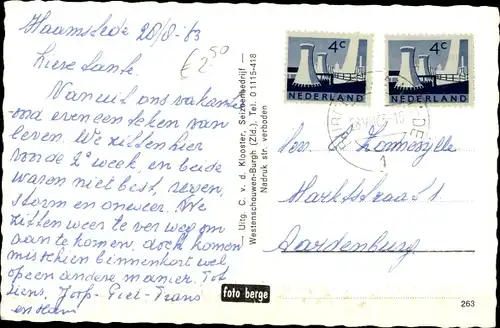 Haamstede 28/8-63
£ 2.50
Lieve tante.
Vanuit ons vakantie
oord even een teken van
leven. We zitten hier
voor de 2e week, en beide
waren niet best, regen,
storm en onweer. We
zitten weer te ver weg om
aan te komen, doch komen
misschien binnenkort wel
op een andere manier. Tot
ziens, Joop - Piet - Frans
en
Uitg. C. v. d. Klooster, Seizbenbedrijf —
Westenschouwen-Burgh (Zld.). Tel. 01115-418
Nadruk str. verboden
foto berge
4c 4c
NEDERLAND NEDERLAND
1
Marktstraat 1
Aardenburg
263